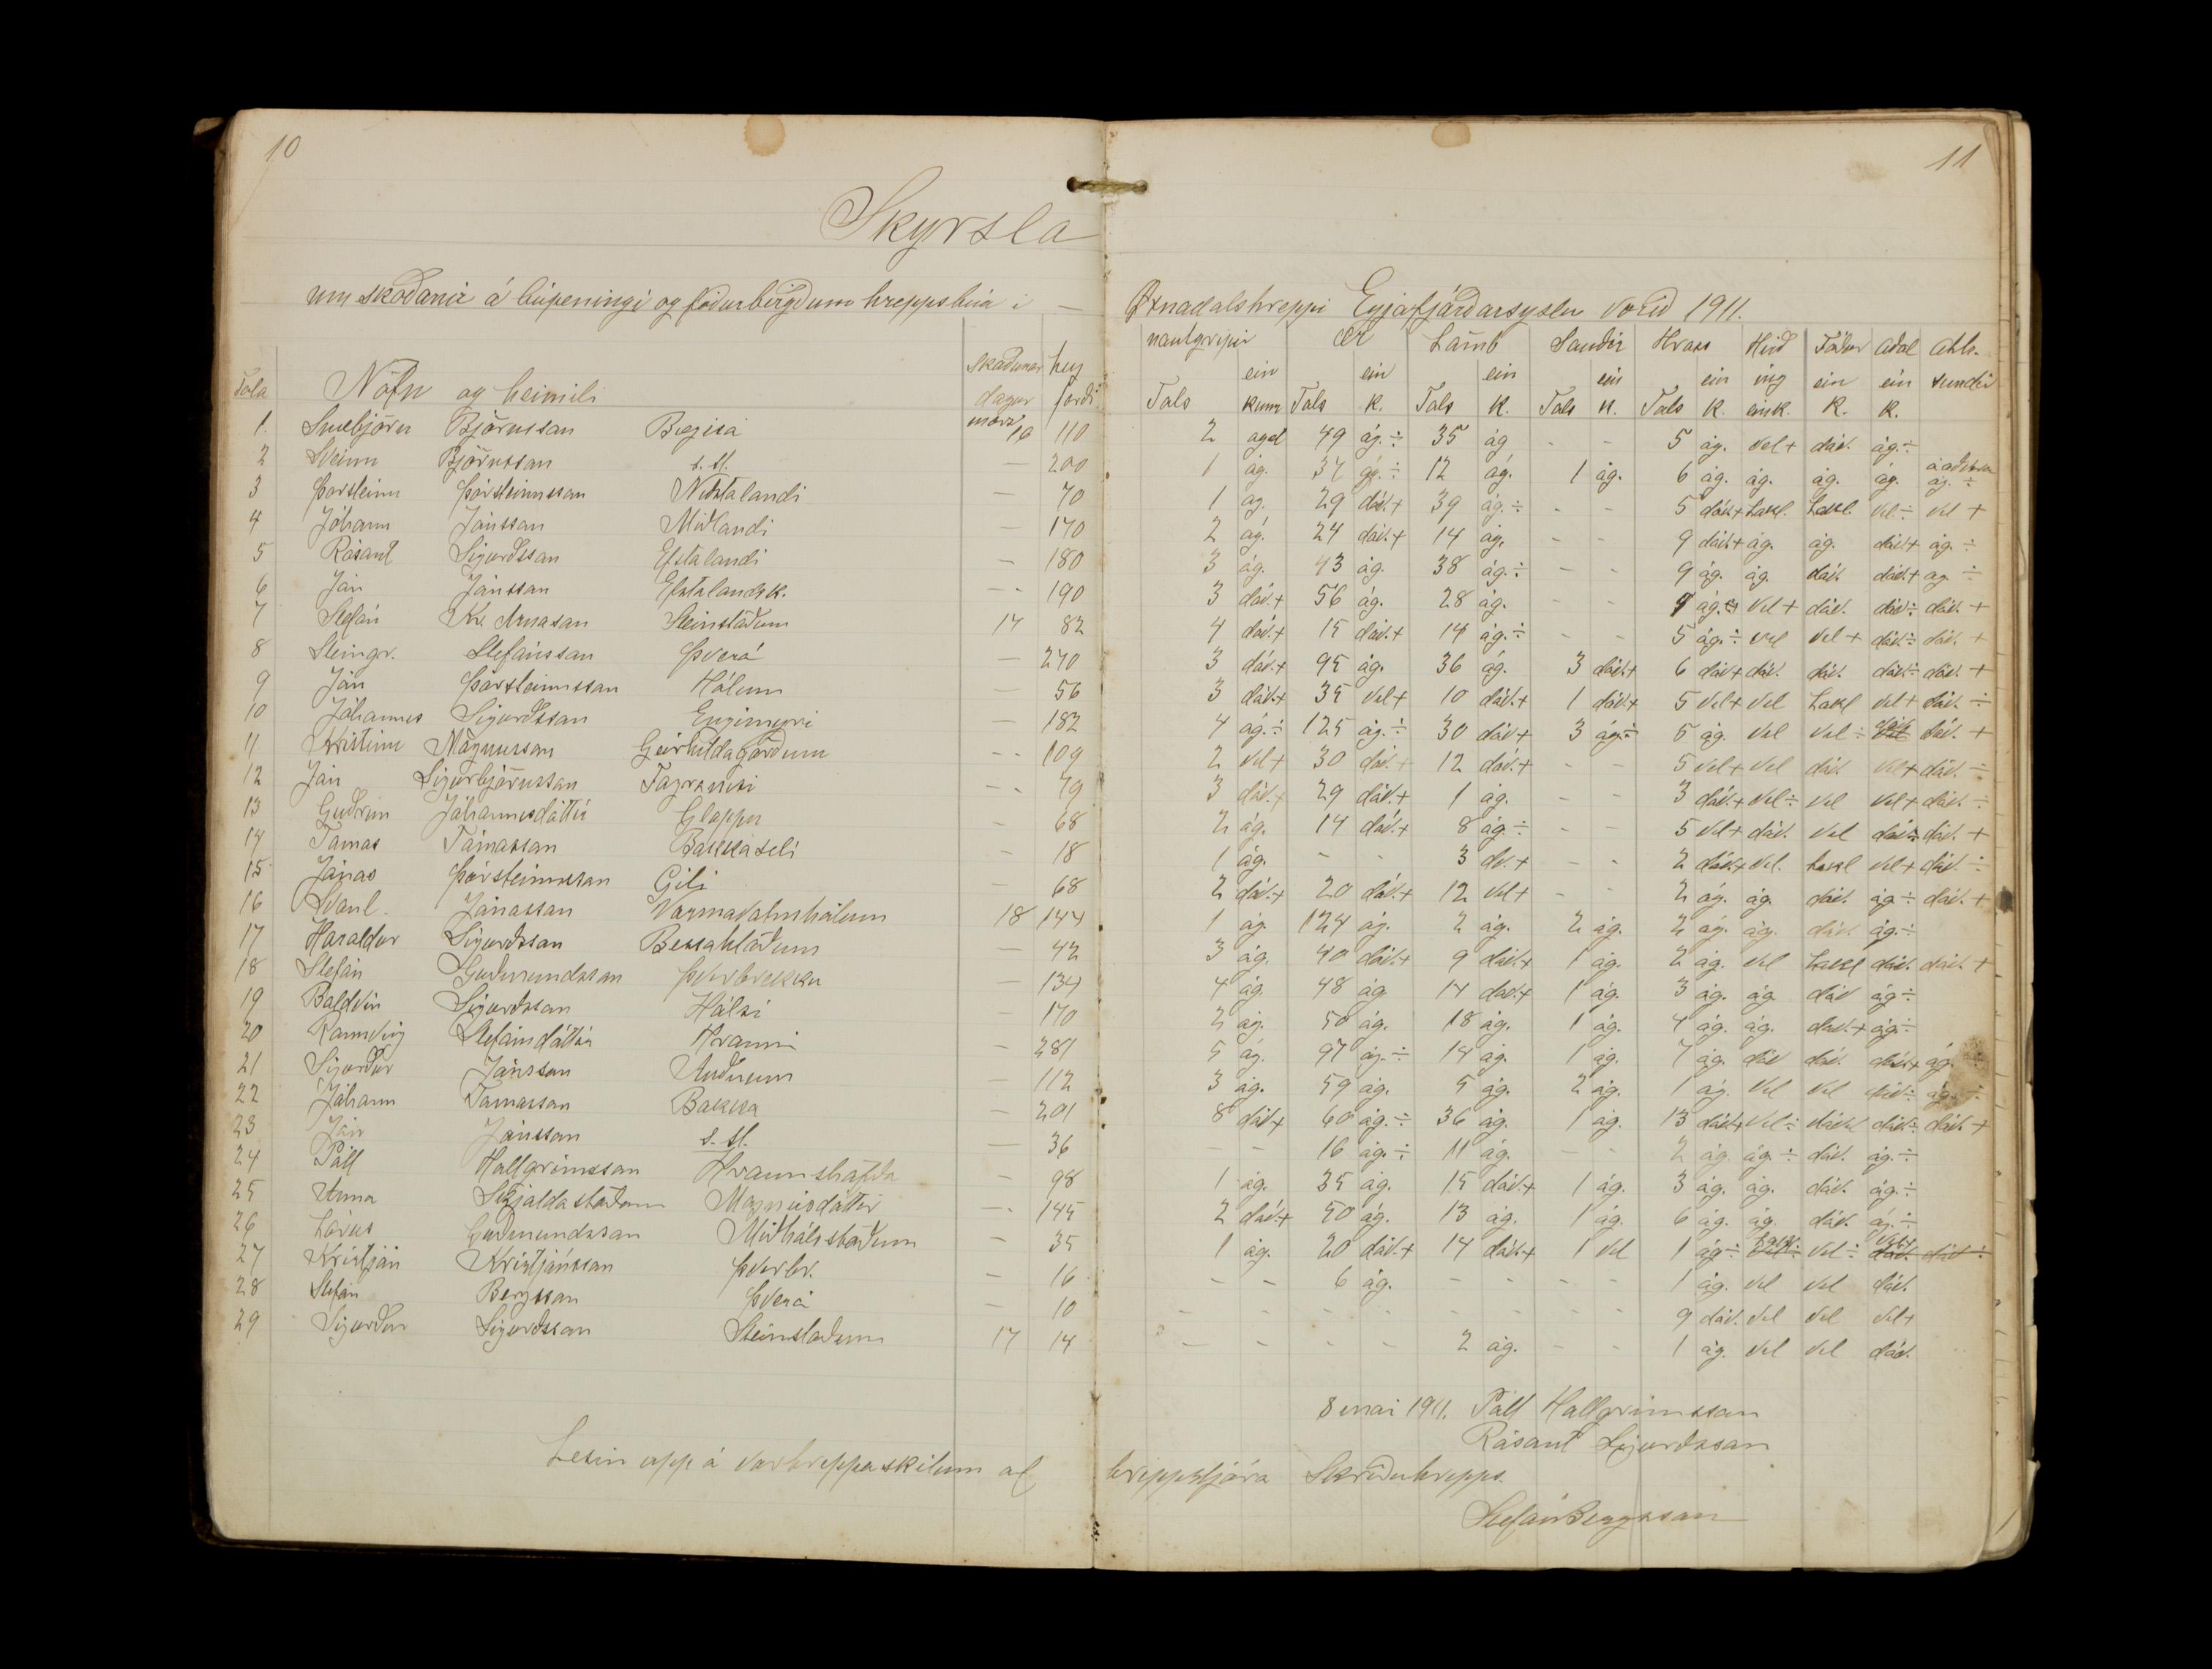 10
11
Skyrsla
um skoðanir á búpeningi og fóðurbirgðum hreppsbúa i — Øxnadalshreppi Eyjafjarðarsyslu vorið 1911.
Skoðunar hey nautgripir Ær Lámb Sauðir Hross Hirð Fóður Aðal Aths.
ein ein ein ein ein ing ein ein
Tala Nöfn og heimili dagur forði Tals kunn Tals k. Tals k. Tals k. Tals k. eink. k. k.
1 Snæbjörn Björnsson Bægisá marz 16 110 2 ágæt 49 ág.÷ 35 ág - - 5 ág. vel+ dáv. ág.÷
2 Sveinn Björnsson s. st. — 200 1 ág. 37 ág.÷ 12 ág. 1 ág. 6 ág. ág. ág. ág. ág. ÷
3 Þorsteinn Þorsteinsson Neðstalandi — 70 1 ág. 29 dáv.+ 39 ág.÷ - - 5 dáv.+ Lakl. Lakl. vel÷ vel +
4 Jóhann Jónsson Miðlandi — 170 2 ág. 24 dáv.+ 14 ág. - - 9 dáv.+ ág. ág. dáv.+ ág. ÷
5 Rósant Sigurðsson Efstalandi — 180 3 ág. 43 ág. 38 ág.÷ - - 9 ág. ág. dáv. dáv.+ ág. ÷
6 Jón Jónsson Efstalandsk. — 190 3 dáv.+ 56 ág. 28 ág. - - 9 ág. vel+ dáv. dáv.÷ dáv. +
7 Stefán Kr. Árnason Steinstöðum 17 82 4 dáv.+ 15 dáv.+ 14 ág.÷ - - 5 ág.÷ vel vel+ dáv.÷ dáv. +
8 Steingr. Stefánsson Þverá — 270 3 dáv.+ 95 ág. 36 ág. 3 dáv.+ 6 dáv.+ dáv. dáv. dáv.÷ dáv. +
9 Jón Þorsteinsson Hólum — 56 3 dáv.+ 35 vel+ 10 dáv.+ 1 dáv.+ 5 vel+ vel Lakl vel+ dáv. ÷
10 Jóhannes Sigurðsson Engimyri — 182 4 ág.÷ 125 ág.÷ 30 dáv+ 3 ág.÷ 5 ág. vel vel÷ dáv. dáv. +
11 Kristinn Magnusson Geirhildagörðum — 109 2 vel+ 30 dáv.+ 12 dáv.+ - - 5 vel+ vel dáv. vel+ dáv. ÷
12 Jón Sigurbjörnsson Fagranesi — 79 3 dáv.+ 29 dáv.+ 1 ág. - - 3 dáv.+ vel÷ vel vel+ dáv. ÷
13 Guðrún Jóhannesdóttir Gloppu — 68 2 ág. 14 dáv.+ 8 ág.÷ - - 5 vel+ dáv. vel dáv.÷ dáv. +
14 Tomas Tómasson Bakkaseli — 18 1 ág. - - 3 dv.+ - - 2 dáv.+ vel. Lakl vel+ dáv. ÷
15 Jónas Þorsteinsson Gili — 68 2 dáv.+ 20 dáv.+ 12 vel+ - - 2 ág. ág. dáv. ág÷ dáv. +
16 Svanl. Jónasson Varmavatnshólum 18 144 1 ág. 124 ág. 2 ág. 2 ág. 2 ág. ág. dáv. ág.÷
17 Haraldur Sigurðsson Bessahlöðum — 42 3 ág. 40 dáv.+ 9 dáv.+ 1 ág. 2 ág. vel Lakl dáv. dáv. +
18 Stefán Guðmundsson Þverbrekku — 134 4 ág. 48 ág 14 dáv.+ 1 ág. 3 ág. ág. dáv ág÷
19 Baldvin Sigurðsson Hálsi — 170 2 ág. 50 ág. 18 ág. 1 ág. 4 ág. ág. dáv.+ ág÷
20 Rannveig Stefánsdóttir Hrauni — 281 5 ág. 97 ág.÷ 14 ág. 1 ág. 7 ág. dáv dáv. dáv.+ ág. ÷
21 Sigurður Jónsson Auðnum — 112 3 ág. 59 ág. 5 ág. 2 ág. 1 ág. vel vel dáv÷ ág. ÷
22 Jóhann Tomasson Bakka — 201 8 dáv+ 60 ág.÷ 36 ág. 1 ág. 13 dáv.+ vel÷ dáv. dáv.÷ dáv. +
23 Jón Jónsson s. st. — 36 - - 16 ág.÷ 11 ág. - - 2 ág. ág.÷ dáv. ág.÷
24 Páll Hallgrímsson Hraunshöfða — 98 1 ág. 35 ág. 15 dáv.+ 1 ág. 3 ág. ág. dáv. ág.÷
25 Anna Skjaldastöðum Magnúsdóttir — 145 2 dáv.+ 50 ág. 13 ág. 1 ág. 6 ág. ág. dáv. ág.÷
26 Lárus Guðmundsson Miðhálsstöðum — 35 1 ág. 20 dáv.+ 14 dáv.+ 1 vel 1 ág÷ Lakl. vel÷ vel+ dáv ÷
27 Kristján Kristjánsson Þverbr. — 16 - - 6 ág. - - - - 1 ág. vel vel dáv.
28 Stefán Bergsson Þverá — 10 - - - - - - - - 9 dáv. vel vel vel+
29 Sigurður Sigurðsson Steinstöðum 17 14 - - - - 2 ág. - - 1 ág. vel vel dáv.
8 mai 1911. Páll Hallgrimsson
Rósant Sigurðsson
Lesin upp á vorhreppaskilum af hreppstjóra Skriðuhrepps.
Stefán Bergsson